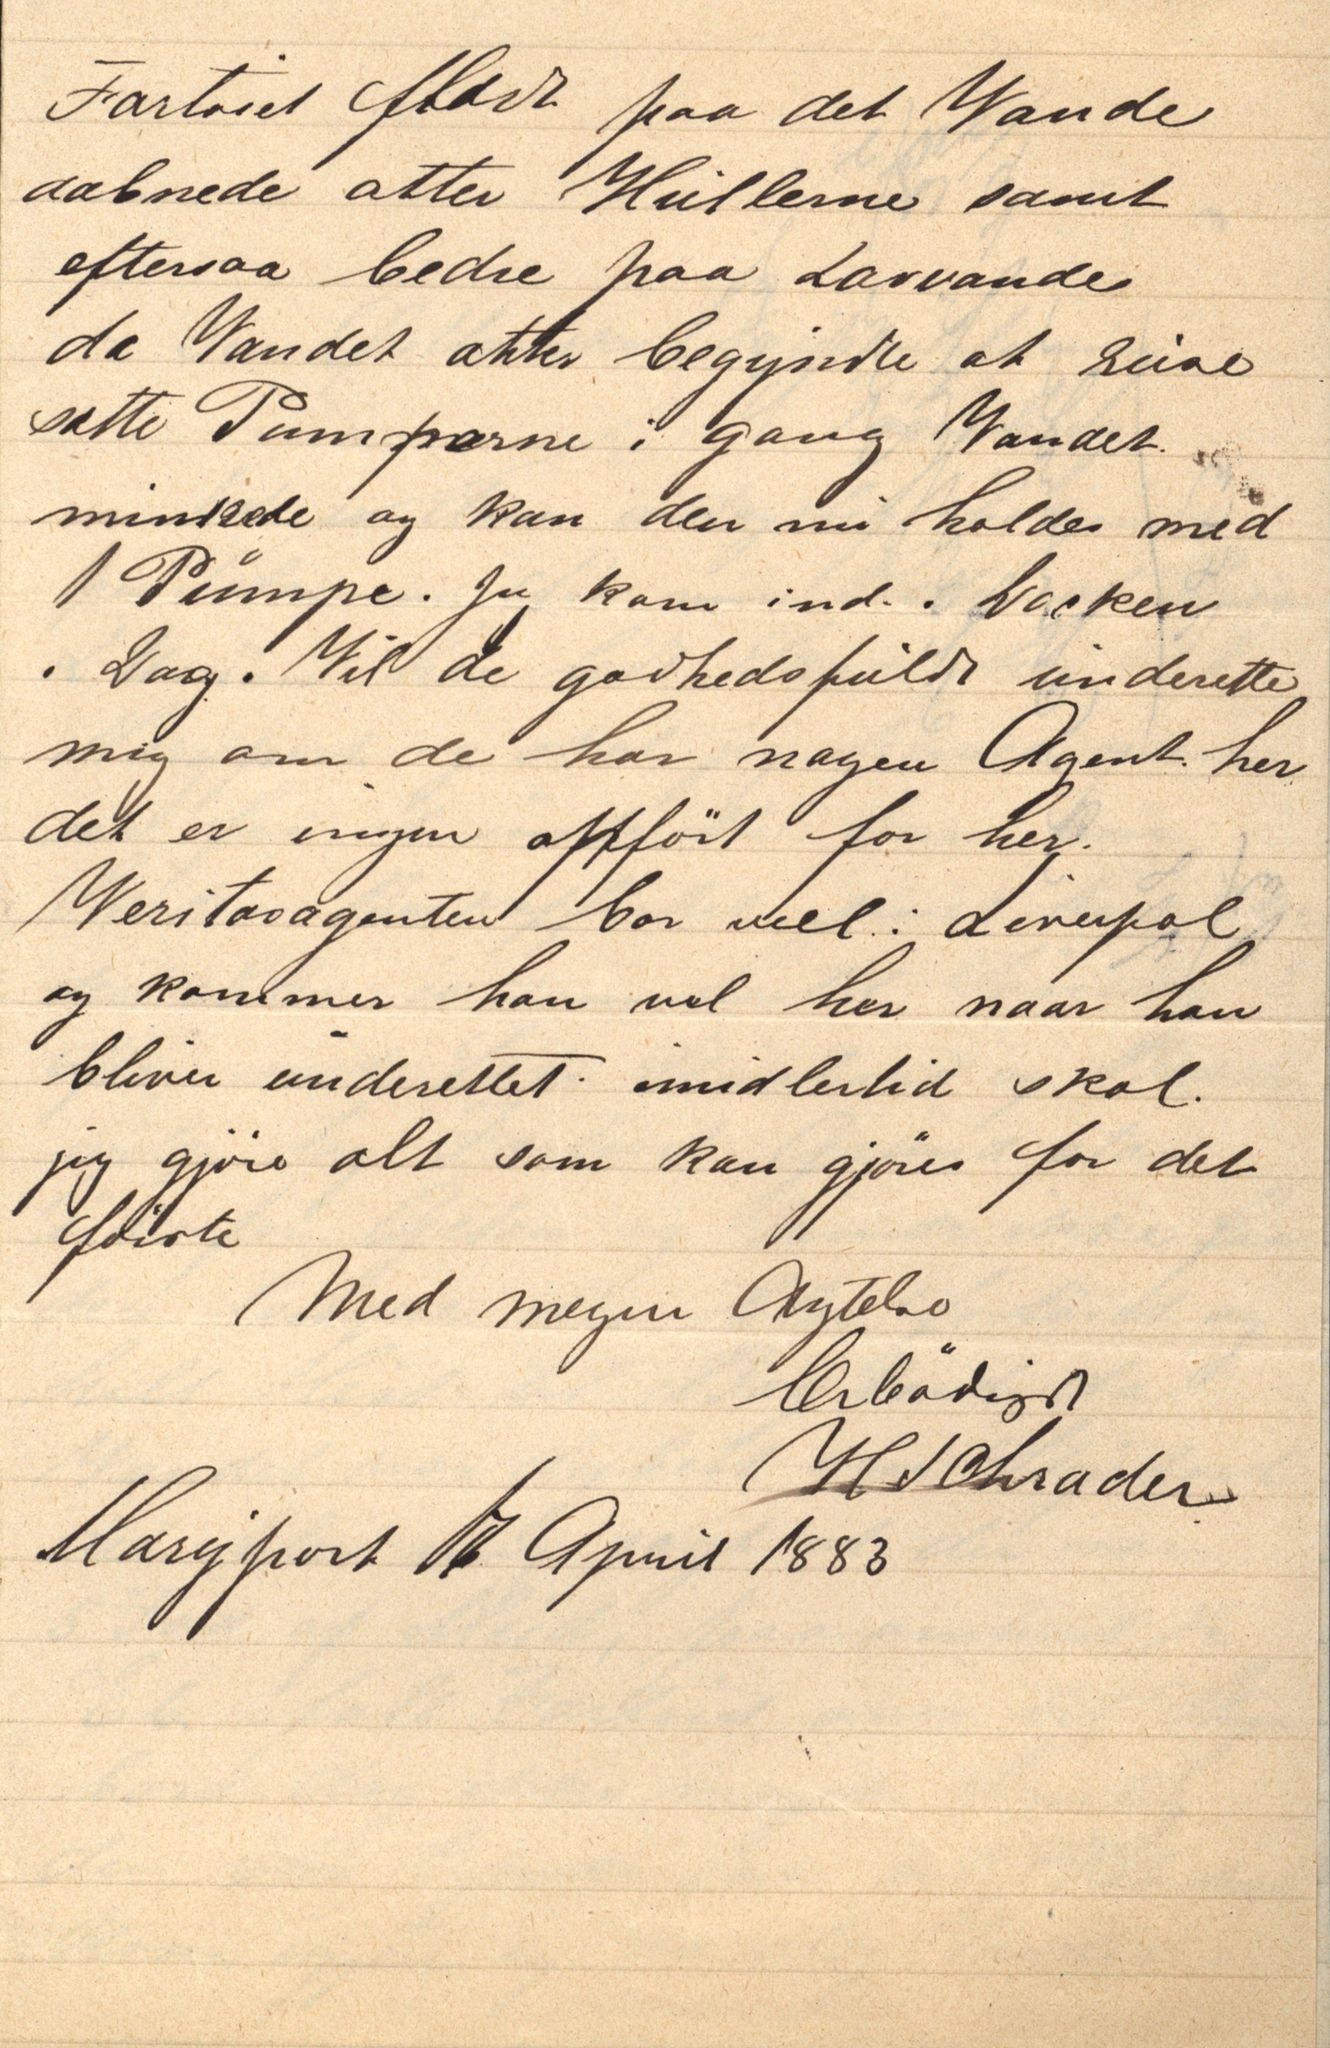 Fartöiet flödt paa det Vande
aabnede atter Hüllerne samt
eftersaa bedre paa Lavvande
da Vandet atter begyndte at
satte Pumperne i gang Vandet
minkede og kan den nü holdes med
1 Pümpe. Jeg kom ind i Docken
i Dag. Vil de godhedsfüldt ünderette
mig om de har nogen Agent her
det er ingen opfört for her.
Veritasagenten bor vel i Liverpol
og kommer han vel her naar han
bliver ünderettet imidlertid skal
jeg gjöre alt som kan gjöres for det
förste
Med megen Agtelse
Erbödigst
H Schrader
Maryport April 1883